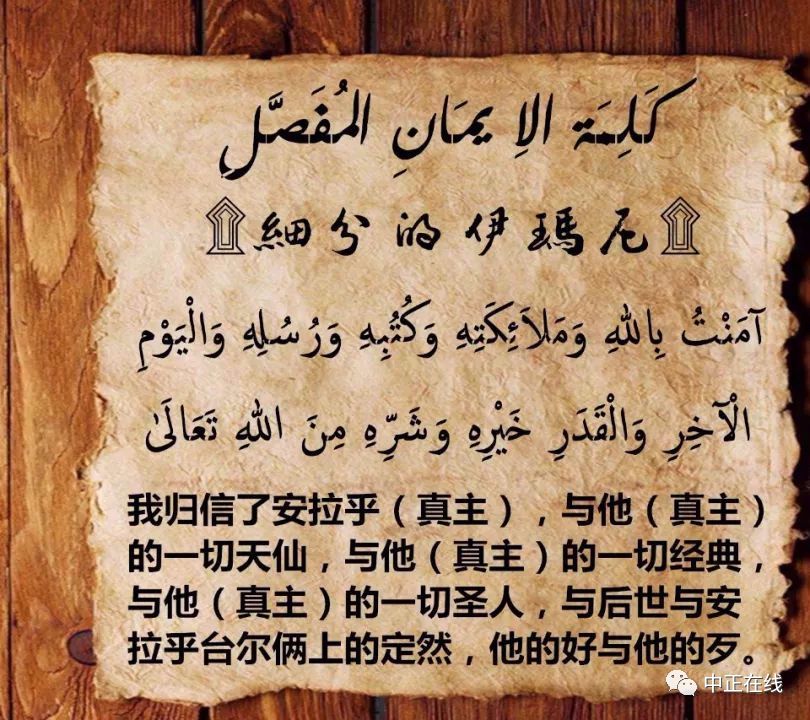 كَلِمَة الإِ يمَانِ المُفَصَّلِ
۩細分的伊瑪尼۩
آمَنْتُ بِاللهِ وَمَلاَئِكَتِهِ وَكُتُبِهِ وَرُسُلِهِ وَالْيَوْمِ
الْآخِرِ وَالْقَدَرِ خَيْرِهِ وَشَرِّهِ مِنَ اللهِ تَعَالَىٰ
我归信了安拉乎（真主），与他（真主）
的一切天仙，与他（真主）的一切经典，
与他（真主）的一切圣人，与后世与安
拉乎台尔俩上的定然，他的好与他的歹。
中正在线